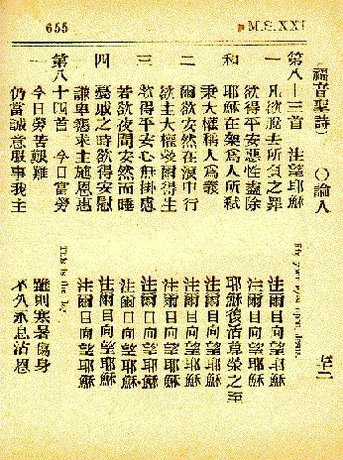 655
M.S.XXI
福音聖詩 〇論人
第八十三首 注望耶穌
Fix your eyes upon Jesus.
一 凡欲脫去所負之罪 注爾目向望耶穌
欲得平安惡性盡除 注爾目向望耶穌
和 耶穌在架為人所弒 耶穌復活尊榮之至
秉大權稱人為義 注爾目向望耶穌
二 爾欲安然在漠中行 注爾目向望耶穌
欲主大權救爾得生 注爾目向望耶穌
三 欲得平安心無掛慮 注爾目向望耶穌
若欲夜間安然而睡 注爾目向望耶穌
四 憂戚之時欲得安慰 注爾目向望耶穌
謙卑懇求主施恩惠 注爾目向望耶穌
第八十四首 今日當勞
This is the day
今日勞苦艱難 雖則寒暑傷身
仍當誠意服事我主 不久永息沾恩